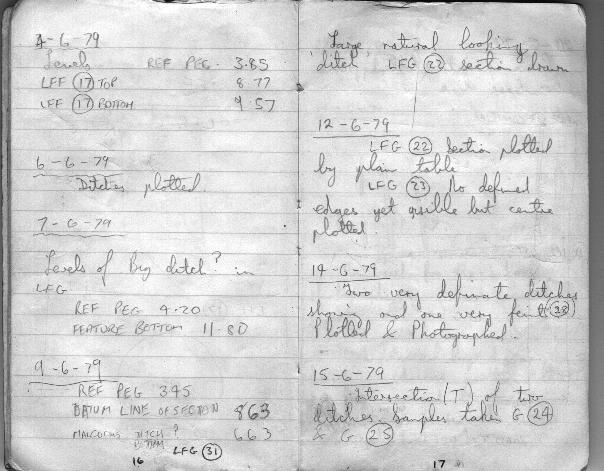 4-6-79
Levels REF PEG. 3.85
LFF (17) TOP 8.77
LFF (17) BOTTOM 9.57
6-6-79
Ditches plotted
7-6-79
Levels of Big ditch? in
LFG
REF PEG 4.20
FEATURE BOTTOM 11.80
9-6-79
REF PEG 3.45
DATUM LINE OF SECTION 8.63
MALCOLMS DITCH? 6.63
BOTTOM
LFG (31)
16
Large, natural looking
ditch LFG (22) section drawn
12-6-79
LFG (22) Section plotted
by plain table
LFG (23) No defined
edges yet visible but centre
plotted.
14-6-79
Two very definate ditches
showing and one very feint (23)
Plotted & Photographed.
15-6-79
Intersection (T) of two
ditches. Samples taken G (24)
& G (25)
17